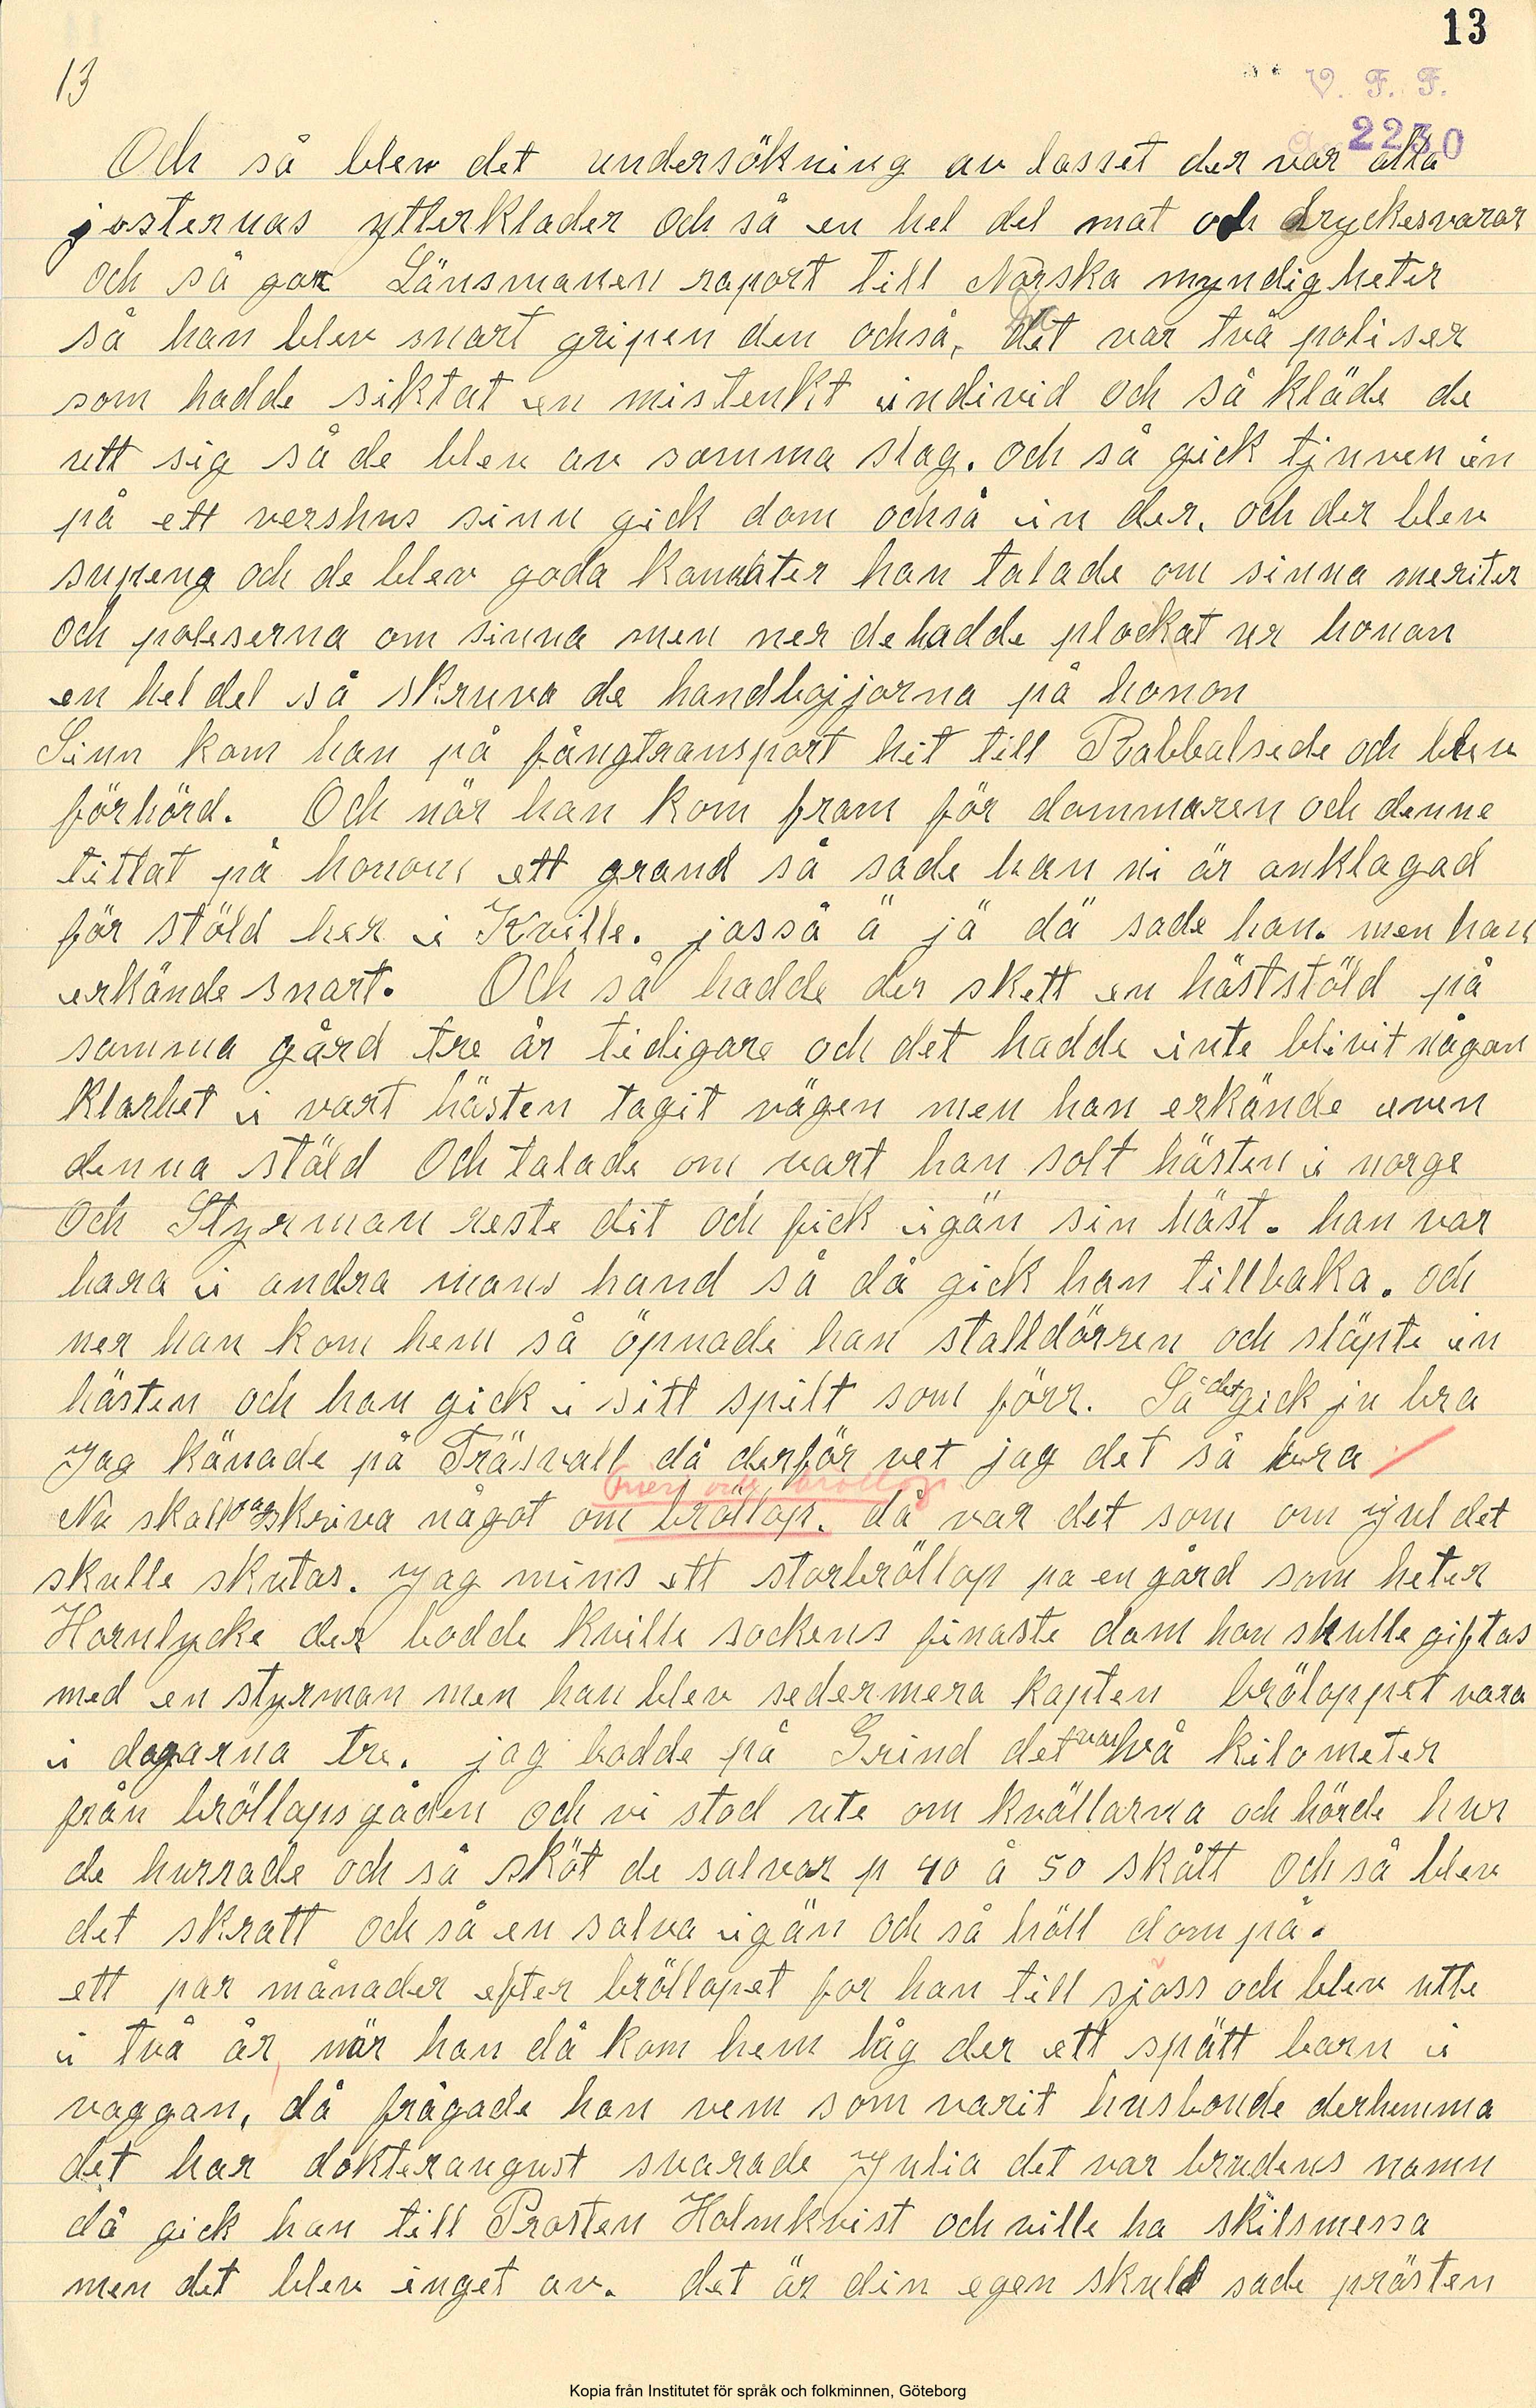 13
13
V. F. F.
2230
Och så blev det undersökning av lasset der var alla
josternas ytterklader och så en hel del mat och dryckesvaror
och så gav Länsmanen raport till Norska myndigheter
så han blev snart gripen den också, det var två poliser
som hadde siktat en mistenkt individ och så kläde de
utt sig så de blev av samma slag. och så gick tjuven in
på ett vershus sinn gick dom också in der. och der blev
supeng och de blev goda kamrater han talade om sinna meriter
och poleserna om sinna men ner de hadde plockat ur honan
en hel del så skruva de handbojjorna på honon
Sinn kom han på fångtransport hit till Rabbalsede och blev
förhörd. Och när han kom fram för dommaren och denne
tittat på honom ett grand så sade han ni är anklagad
för stöld her i Kville. jasså ä jä dä sade han. men han
erkände snart. Och så hadde der skett en häststöld på
samma gård tre år tidigare och det hadde inte blivit någon
klarhet i vart hästen tagit vägen men han erkände even
denna stöld Och talade om vart han solt hästen i norge
och Styrman reste dit och fick igän sin häst. han var
bara i andra mans hand så då gick han tillbaka. och
ner han kom hem så öpnade han stalldörren och släpte in
hästen och han gick i sitt spilt som förr. Så det gick ju bra
Jag känade på Träsvall då derför vet jag det så bra
Nu skall jag skriva något om bröllop. då var det som om Jul det
skulle skutas. Jag mins ett storbröllop pa en gård som heter
Hornlycke der bodde Kville sockens finaste dam hon skulle giftas
med en styrman men han blev sedermera kapten bröloppet vara
i dagarna tre. jag bodde på Grind det var två kilometer
från bröllopsgåden och vi stod ute om kvällarna och hörde hur
de hurrade och så sköt de salvor p 40 å 50 skått och så blev
det skratt och så en salva igän och så höll dom på.
ett par månader efter bröllopet for han till sjöss och blev utte
i två år, när han då kom hem låg der ett spätt barn i
vaggan, då frågade han vem som varit husbonde derhemma
det har dokteraugust svarade Julia det var brudens namn
då gick han till Prosten Holmkvist och ville ha skilsmessa
men det blev inget av. det är din egen skuld sade prästen
Kopia från Institutet för språk och folkminnen, Göteborg